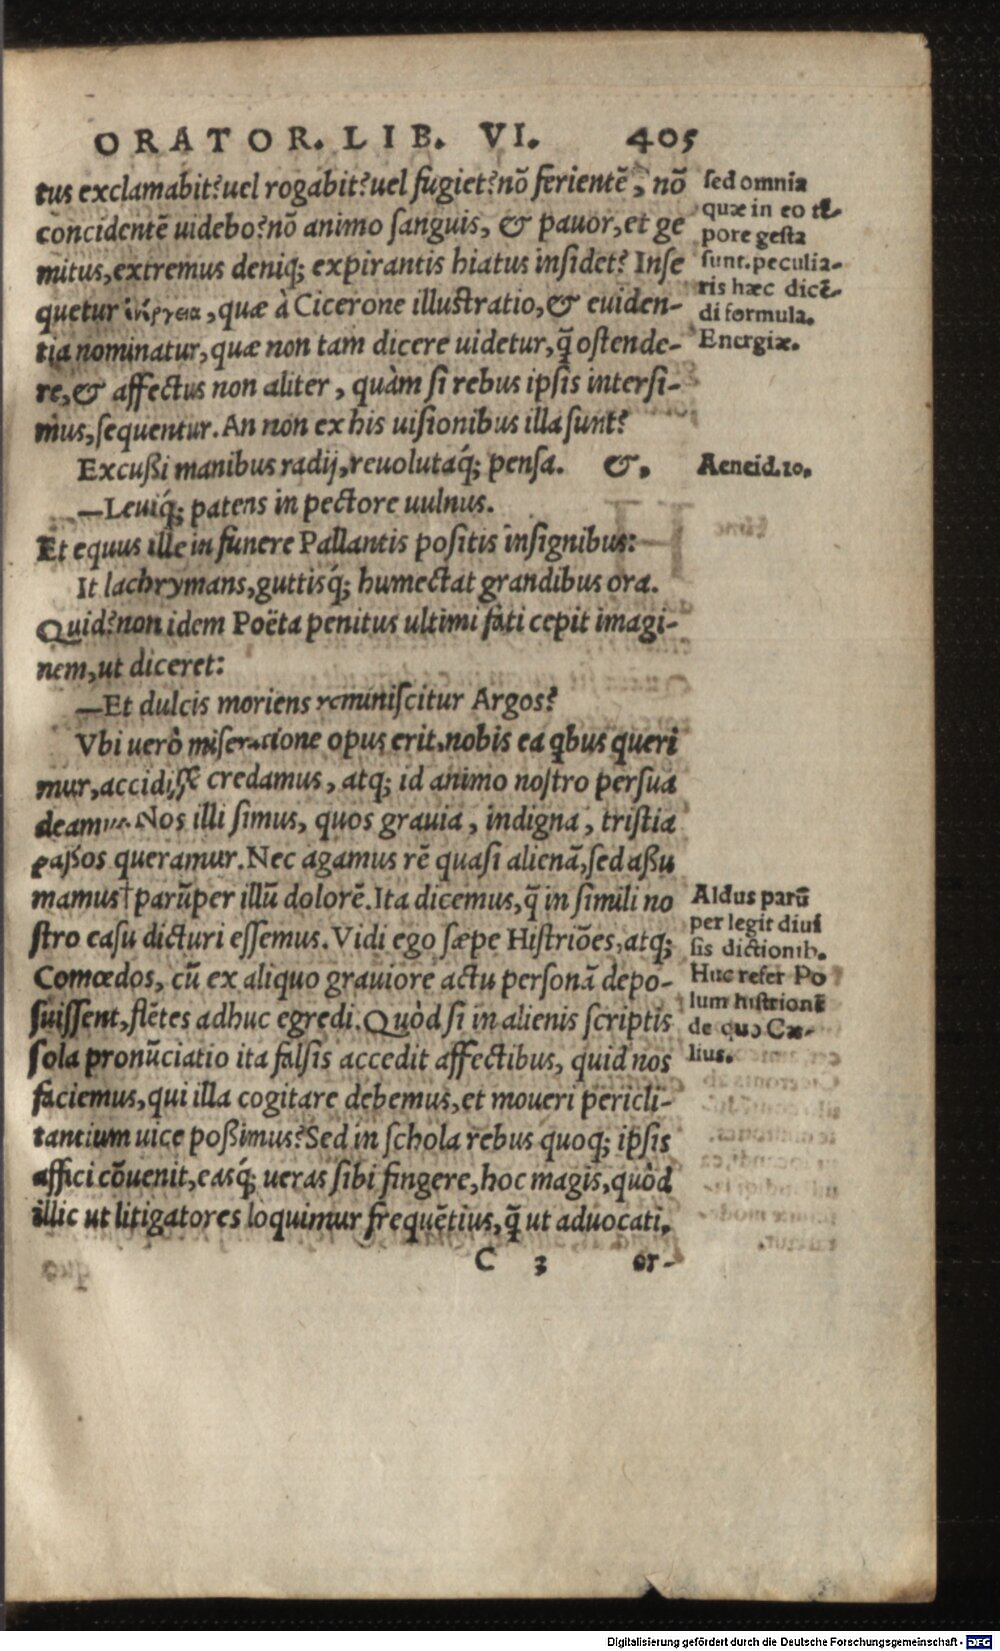 ORATOR. LIB. VI. 405
tus exclamabit? uel rogabit? uel fugiet? nõ ferientẽ, nõ
concidentẽ uidebo? nõ animo sanguis, & pavor, et ge
mitus, extremus deniq; expirantis hiatus insidet? Inse
quetur ἐνέργεια, quæ à Cicerone illustratio, & euiden-
tia nominatur, quæ non tam dicere uidetur, q̃ ostende-
re, & affectus non aliter, quàm si rebus ipsis intersi-
mus, sequentur. An non ex his uisionibus illa sunt?
Excußi manibus radij, reuolutaq́; pensa. &.
—Leuiq́; patens in pectore uulnus.
Et equus ille in funere Pallantis positis insignibus:
It lachrymans, guttisq́; humectat grandibus ora.
Quid? non idem Poëta penitus ultimi fati cepit imagi-
nem, ut diceret:
—Et dulcis moriens reminiscitur Argos?
Vbi uerò miseratione opus erit, nobis ea qbus queri
mur, accidisse credamus, atq; id animo nostro persua
deamus. Nos illi simus, quos grauia, indigna, tristia
paßos queramur. Nec agamus rẽ quasi alienã, sed aßu
mamus† parũper illũ dolorẽ. Ita dicemus, q̃ in simili no
stro casu dicturi essemus. Vidi ego sæpe Histriões, atq;
Comœdos, cũ ex aliquo grauiore actu personã depo-
suissent, flẽtes adhuc egredi. Quòd si in alienis scriptis
sola pronũciatio ita falsis accedit affectibus, quid nos
faciemus, qui illa cogitare debemus, et moueri pericli-
tantium uice poßimus? Sed in schola rebus quoq; ipsis
affici cõuenit, easq́; ueras sibi fingere, hoc magis, quòd
illic ut litigatores loquimur frequẽtius, q̃ ut aduocati.
C 3 or-
sed omnia
quæ in eo tẽ-
pore gesta
sunt. peculia-
ris hæc dicẽ-
di formula.
Energiæ.
Aeneid. 10.
Aldus parũ
per legit diui
sis dictionib.
Huc refer Po
lum histrionẽ
de quo Cæ-
lius.
Digitalisierung gefördert durch die Deutsche Forschungsgemeinschaft - DFG